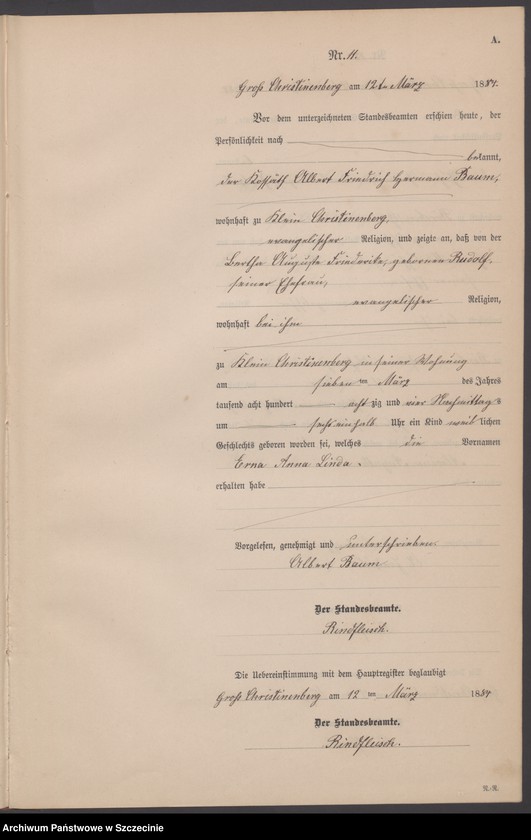 A.
Nr. 11.
Groß Christinenberg am 12ten März 1884.
Vor dem unterzeichneten Standesbeamten erschien heute, der
Persönlichkeit nach
bekannt,
der Kossäth Albert Friedrich Hermann Baum,
wohnhaft zu Klein Christinenberg,
evangelischer Religion, und zeigte an, daß von der
Bertha Auguste Friederike, geborenen Rudolf,
seiner Ehefrau,
evangelischer Religion,
wohnhaft bei ihm
zu Klein Christinenberg in seiner Wohnung
am sieben ten März des Jahres
tausend acht hundert acht zig und vier Nachmittags
um sechseinhalb Uhr ein Kind weib lichen
Geschlechts geboren worden sei, welches die Vornamen
Erna Anna Linda.
erhalten habe
Vorgelesen, genehmigt und unterschrieben.
Albert Baum
Der Standesbeamte.
Rindfleisch.
Die Uebereinstimmung mit dem Hauptregister beglaubigt
Groß Christinenberg am 12 ten März 1884
Der Standesbeamte.
Rindfleisch.
N.-R.
Archiwum Państwowe w Szczecinie